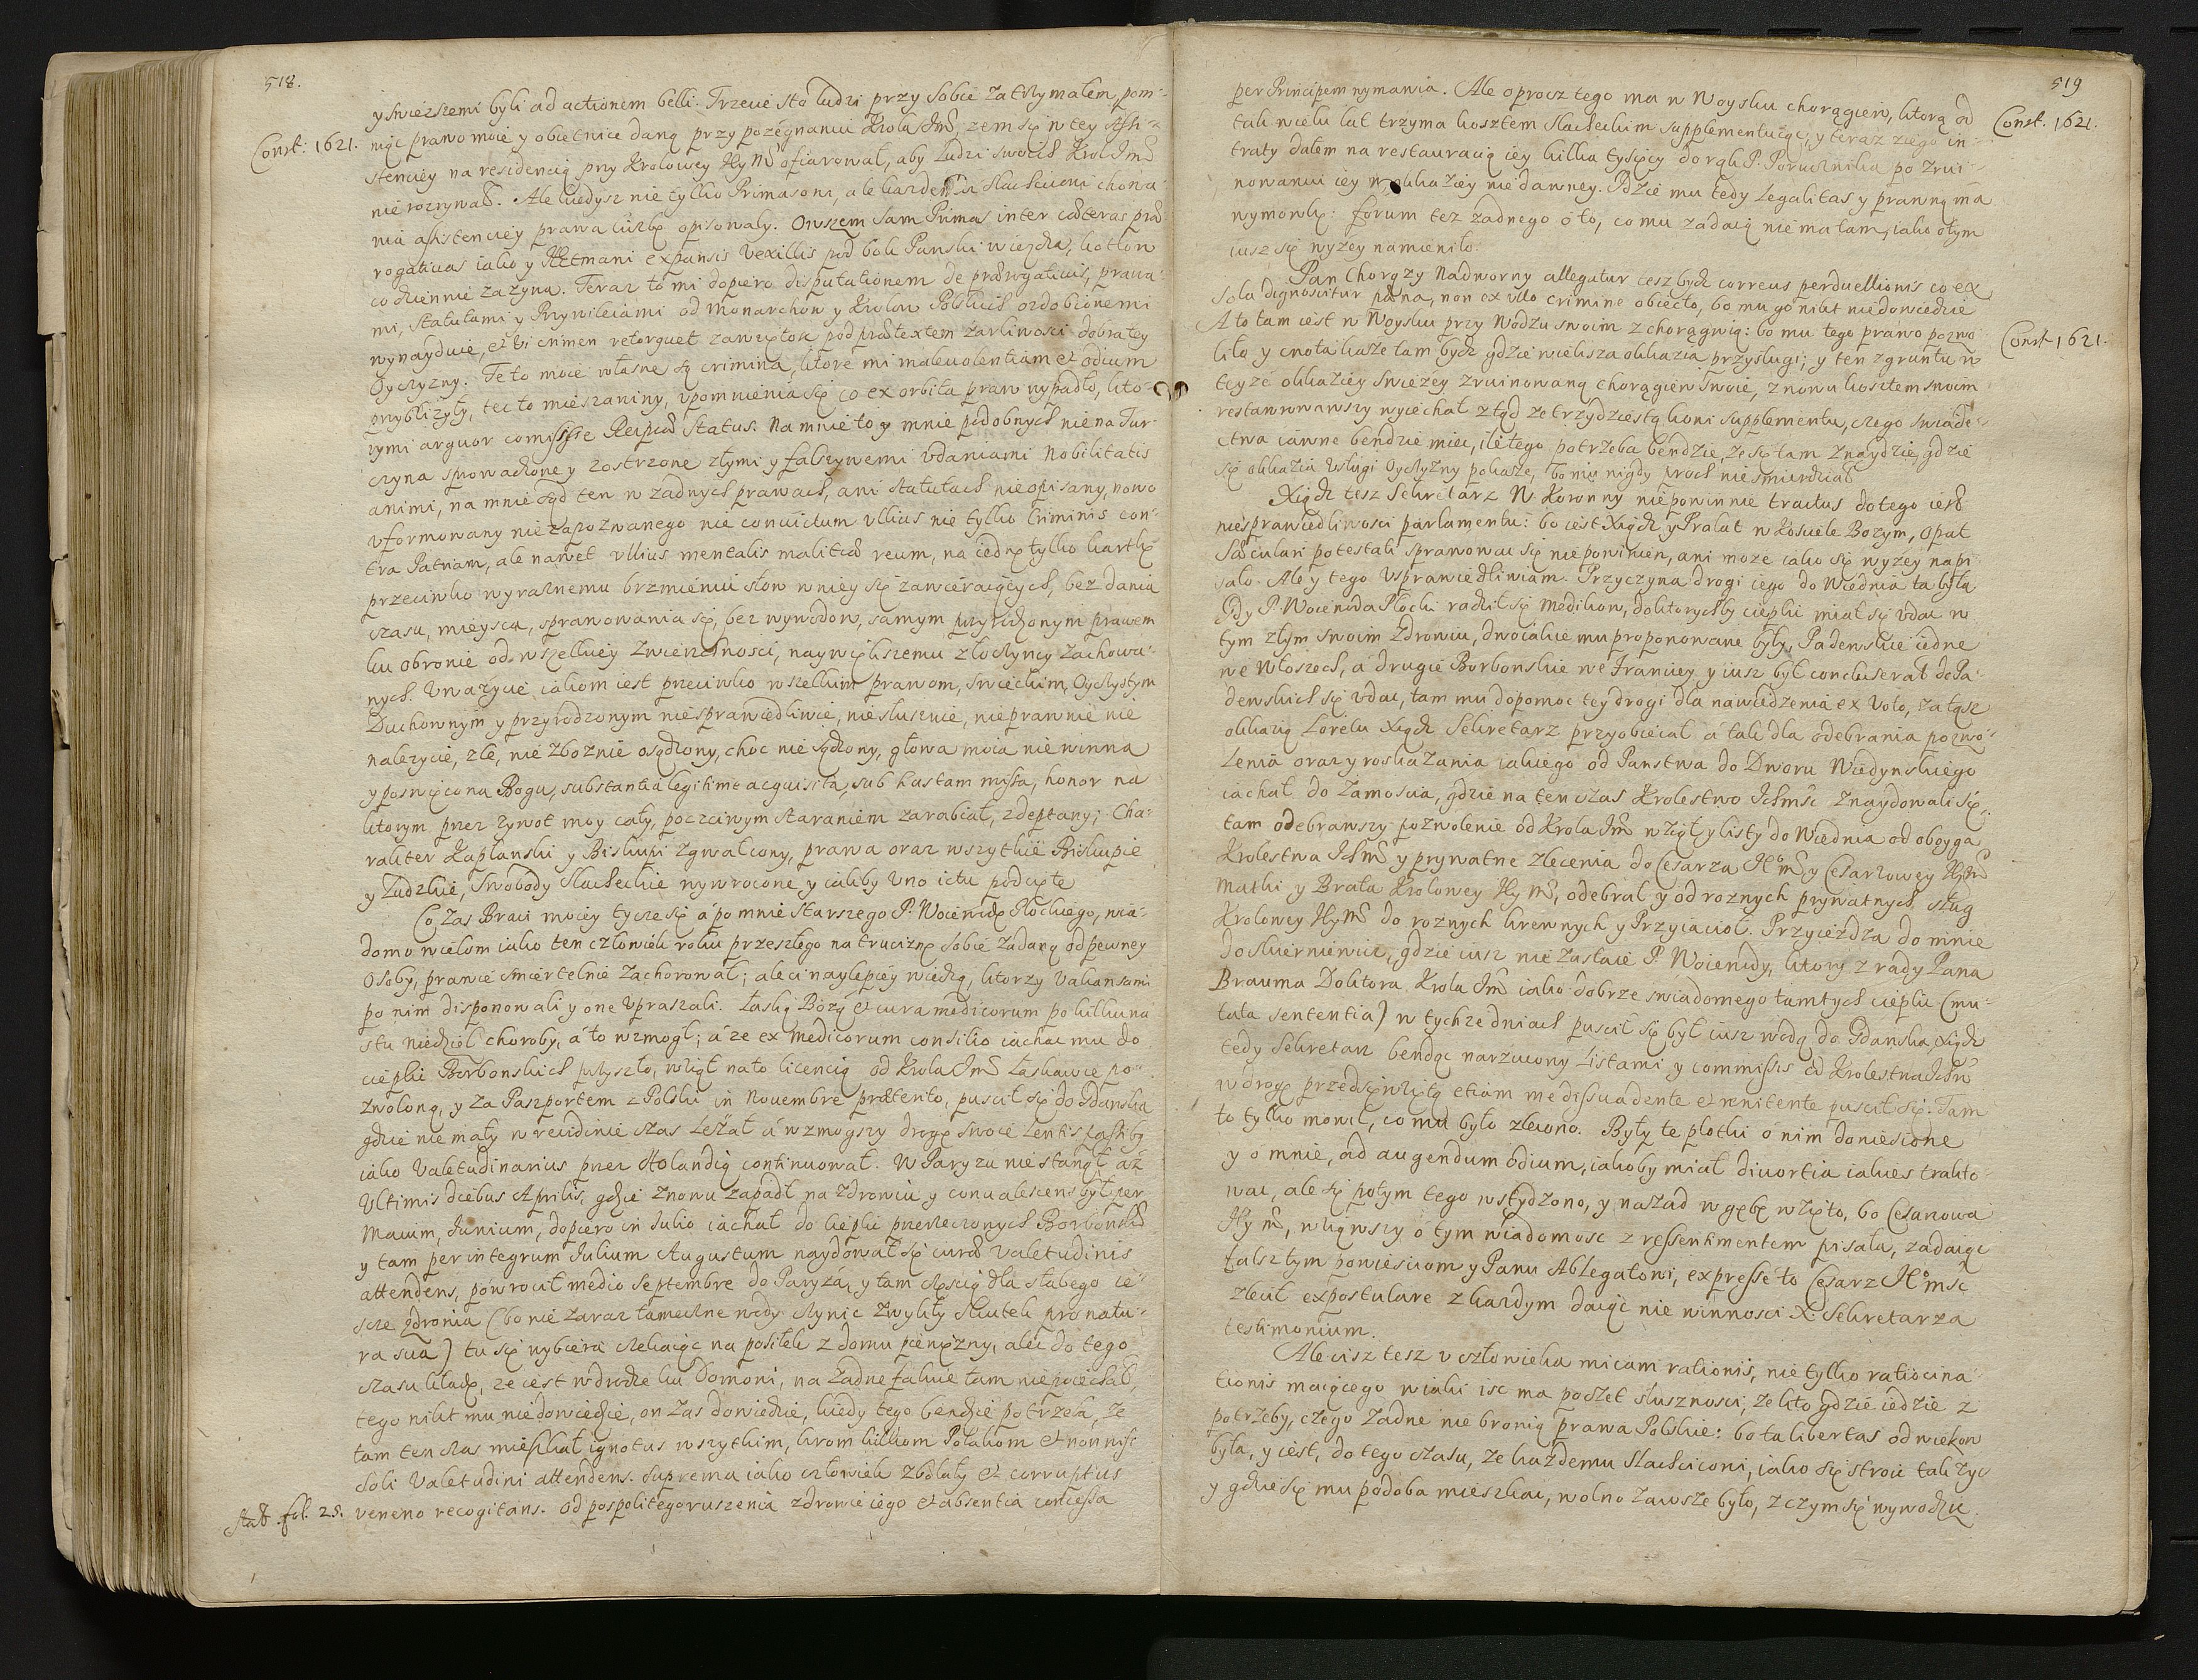 518.
y swieższemi byli ad actionem belli. Trzecie sto ludzi przy sobie zatrzymałem, pom-
Const: 1621.
niąc prawo moie y obietnice daną przy pozegnaniu Krola Jmć, zem się w tey assi-
stenciey na residencią przy Krolowey Jey Mć ofiarował, aby ludzi swoich Krol Jmć
nie rozrywał. Ale kiedysz nie tylko Primasom, ale kazdemu Slachcicowi chowa-
nia assistenciey prawa liczbę opisowały. Owszem sam Primas inter cæteras præ-
rogativas iako y Hetmani expansis vexillis pod bok Panski wiezdza, kotłow
codziennie zazywa. Teraz to mi dopiero disputationem de prærogativis, prawa-
mi, statutami y Przywileiami od Monarchow y Krolow Polskich ozdobionemi
wynayduie, et vi crimen retorquet zawziętosc pod prætextem zarliwosci dobra tey
Oyczyzny. Te to moie własne są crimina, ktore mi malevolentiam et odium
przybliżyły, tec to mieszaniny, upomnienia się co ex orbita praw wypadło, kto-
rymi arguor comissse Reipcæ Status. Na mnie to y mnie podobnych nie na Tur-
czyna sprowadzone y zostrzone złymi y falszywemi udaniami Nobilitatis
animi, na mnie sąd ten w zadnych prawach, ani statutach nieopisany, nowo
uformowany niezapozwanego nie convictum ullius nie tylko Criminis con-
tra Patriam, ale nawet ullius mentalis malitiæ reum, na iednę tylko kartkę
przeciwko wyraznemu brzmieniu słow w niey się zawieraiących, bez dania
czasu, mieysca, sprawowania się, bez wywodow, samym przyrodzonym prawem
ku obronie od wszelkiey zwierzchnosci, naywiększemu złoczyncy zachowa-
nych. Uwazycie iakom iest przeciwko wszelkim prawom, swieckim, Oyczystym
Duchownym y przyrodzonym niesprawiedliwie, niesłusznie, nieprawnie nie
nalezycie, zle, nie zboznie osądzony, choc nie sądzony, głowa moia niewinna
y poswięcona Bogu, substantia legitime acquisita, sub hastam missa, honor na
ktorym przez zywot moy cały, poczciwym staraniem zarabiał, zdeptany; Cha-
rakter Kapłanski y Biskupi zgwałcony, prawa oraz wszytkie Biskupie
y Ludzkie, Swobody Slacheckie wywrocone y iakby uno ictu podcięte
Co zas Braci moiey tycze się á po mnie starszego P. Woiewodę Płockiego, wia-
domo wielom iako ten człowiek roku przeszłego na truciznę sobie zadaną od pewney
Osoby, prawie smiertelnie zachorował; ale ci naylepiey wiedzą, ktorzy vakansami
po nim disponowali y one upraszali. Łaską Bozą et cura medicorum po kilkuna-
stu niedziel choroby, á to wzmogł; á ze ex Medicorum consilio iachac mu do
cieplic Borbonskich przyszło, wziął na to licencią od Krola Jmć łaskawie po-
zwoloną, y za Paszportem z Polski in Novembre præterito, puscił się do Gdanska
gdzie nie mały w recidiwie czas Leżał á wzmogszy drogę swoie Lentis passiby
iako valetudinarius przez Holandią continuował. W Paryzu nie stanął, aż
Ultimis diebus Aprilis, gdzie znowu zapadł na zdrowiu y convalescens był per
Maium, Junium, dopiero in Julio iachał do cieplic przerzeczonych Borbonskich
y tam per integrum Julium Augustum naydował się curæ valetudinis
attendens, powrocił medio Septembre do Paryżá, y tam częscią dla słabego ie-
scze zdrowia (bo nie zaraz tameczne wody czynic zwykły skutek pro natu-
ra sua) tu się wybiera czekaiąc na posiłek z domu pieniężny, alec do tego
czasu kładę, ze iest w drodze ku Domowi, na zadne fakcie tam nie poiechał,
tego nikt mu nie dowiedzie, on zas dowiedzie, kiedy tego bendzie potrzeba, ze
tam ten czas mieszkał ignotus wszytkim, krom kilkom Polakom et non nisi
soli valetudini attendens. Suprema iako człowiek zbolały et corruptus
Stat. fol. 25. veneno recogitans. Od pospolitego ruszenia zdrowie iego et absentia concessa
519
per Principem wymawia. Ale oprocz tego ma w Woysku chorągiew, ktorą od
Const. 1621.
tak wielu lat trzyma kosztem Slacheckim supplementuiąc, y teraz z iego in-
traty dałem na restauracią iey kilka tysięcy do rąk P. Porucznika po zrui-
nowaniu iey w okkaziey niedawney. Idzie mu tedy Legalitas y prawną ma
wymowkę: forum tez zadnego o to, co mu zadaią nie matam, iako otym
iusz się wyzey namieniło.
Pan Chorązy Nadworny allegatur tesz bydz correus perduellionis co ex
sola dignoscitur pæna, non ex ullo crimine obiecto, bo mu go nikt nie dowiedzie
A to tam iest w Woysku przy Wodzu swoim z chorągwią: bo mu tego prawo pozwo-
Const 1621.
liło y cnota kaze tam bydz gdzie wieksza okkazia przysługi; y ten z gruntu w
teyze okkaziey swiezey zruinowaną chorągiew swoie, znowu kosztem swoim
restaurowawszy wyiechał ztąd ze trzydziestą koni supplementu, czego swiade-
ctwa iawne bendzie miec, ile tego potrzeba bendzie, ze się tam znaydzie, gdzie
się okkazia usługi Oyczyzny pokaże, bo mu nigdy proch nie smierdział
Xiądz tesz Sekretarz W. Koronny niepowinnie tractus do tego iest
niesprawiedliwosci parlamentu: bo iest Xiądz y Prałat w Kosciele Bozym, Opat
Sæculari potestati sprawowac się niepowinien, ani moze iako się wyzey napi-
sało. Ale y tego Usprawiedliwiam. Przyczyna drogi iego do Wiednia ta była
Gdy P. Woiewoda Płocki radził się Medikow, do ktorychby cieplic miał się udac w
tym złym swoim zdrowiu, dwoiakie mu proponowane były, Padewskie iedne
we Włoszech, á drugie Borbonskie we Franciey y iusz był concluserat do Pa-
dewskich się udac, tam mu dopomoc tey drogi dla nawiedzenia ex voto, za tąsz
okkazią Loretu Xiądz Sekretarz przyobiecał á tak dla odebrania pozwo-
Lenia oraz y roskazania iakiego od Panstwa do Dworu Wiedynskiego
iachał do Zamoscia, gdzie na ten czas Krolestwo Ichmśc znaydowali się.
tam odebrawszy pozwolenie od Krola Jmć wziął y listy do Wiednia od oboyga
Krolestwa Ichmć y prywatne zlecenia do Cesarza Je⁰ mć y Cesarzowey Jey mć
Matki y Brata Krolowey Jey Mć, odebrał y od roznych prywatnych sług
Krolowey Jey Mć do roznych krewnych y Przyiacioł. Przyieżdza do mnie
do Skierniewic, gdzie iusz nie zastaie P. Woiewody, ktory z rady Pana
Brauna Doktora Krola Jmć iako dobrze swiadomego tamtych cieplic (mu-
tata sententia) w tychze dniach puscił się był iusz wodą do Gdanska, Xiądz
tedy Sekretarz bendąc narzucony Listami y commissis od Krolestwa Ichmć
w drogę przedsięwziętą etiam me dissuadente et renitente puscił się. Tam
to tylko mowił, co mu było zlecono. Były te plotki o nim doniesione
y o mnie, ad augendum odium, iakoby miał divortia iakies trakto-
wac, ale się potym tego wstydzono, y naszad w gębę wzięto, bo Cesarzowa
Jey mć, wziąwszy o tym wiadomosc z ressentimentem pisała, zadaiąc
falsz tym powiesciom y Panu Ablegatowi, expresse to Cesarz Je⁰ mśc
zlecił expostulare z kazdym daiąc nie winnosci X. Sekretarza
testimonium.
Ale cisz tesz u człowieka micam rationis, nie tylko ratiocina-
tionis maiącego w iaki isc ma poczet słusznosci, ze kto gdzie iedzie z
potrzeby, czego zadne nie bronią prawa Polskie: bo ta libertas od wiekow
była, y iest, do tego czasu, ze kazdemu Slachcicowi, iako się stroic tak zyc
y gdzie się mu podoba mieszkac, wolno zawsze było, z czym się wywodzę